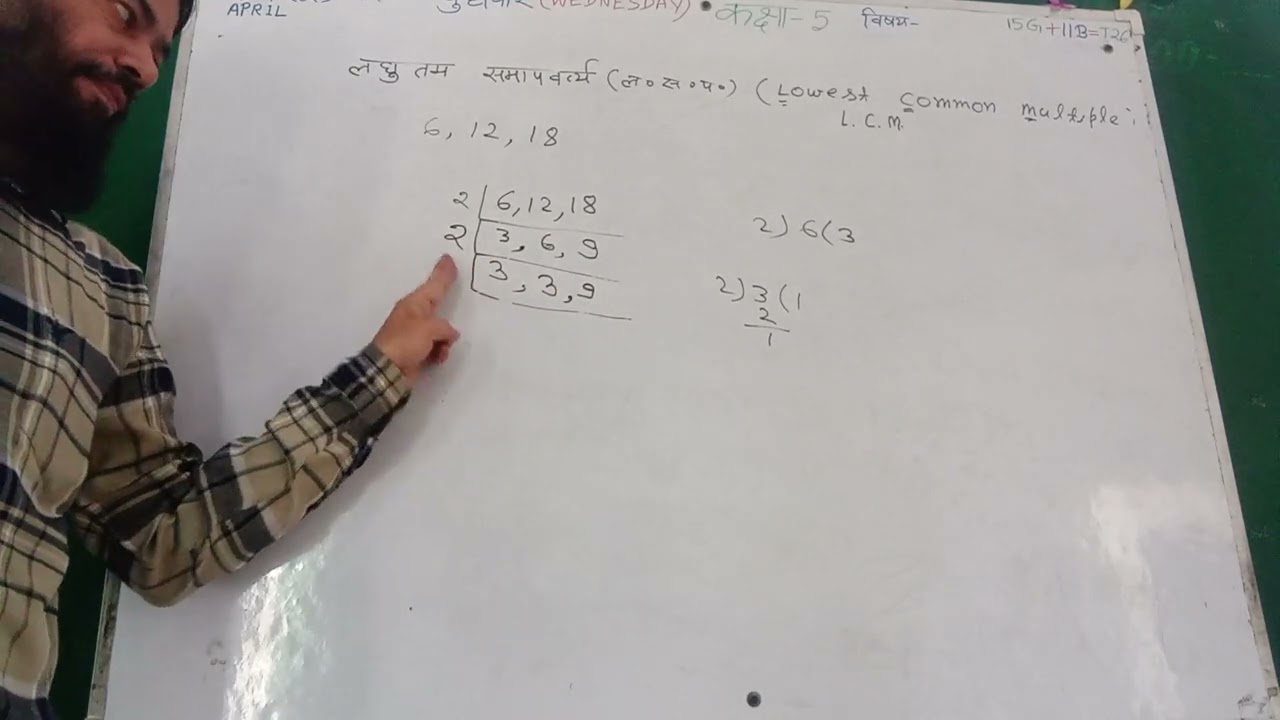 APRIL (WEDNESDAY) कक्षा-5 विषय- 15G+11B=T26
लघु तम समापवर्त्य (ल०स०प०) (Lowest Common multiple
L.C.M.
6, 12, 18
2 | 6, 12, 18
2 | 3, 6, 9
3, 3, 9
2) 6 (3
2) 3 (1
2
1